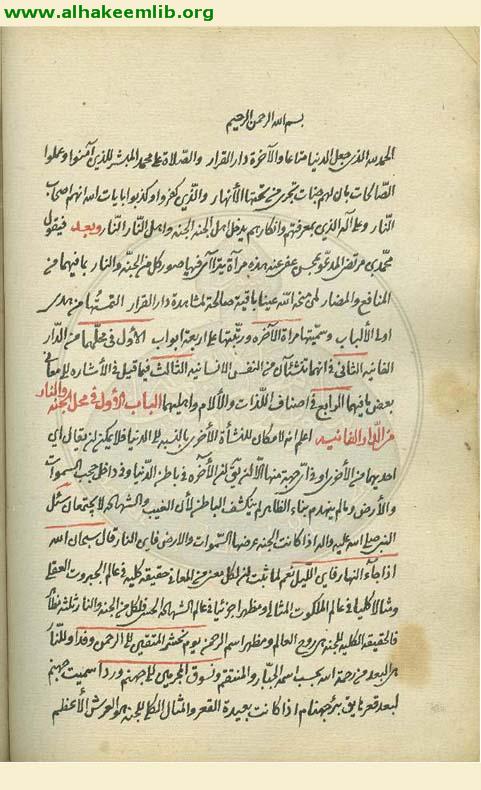 www.alhakeemlib.org
بسم الله الرحمن الرحیم
الحمدلله الذی جعل الدنیا متاعا والآخرة دار القرار والصّلاة علی محمد المبشر للذین آمنوا وعملوا
الصّالحات بان لهم جنات تجری من تحتها الأنهار والذین کفروا وکذبوا بایات الله انهم اصحاب
النّار وعلی آله الذی بمعرفتهم وانکارهم یدخل اهل الجنة الجنة واهل النّار النّار وبعد فیقول
محمد بن مرتضی المدعو بمحسن عفی عنه هذه مرآة یتراآی فیها صور کل من الجنّة والنار بافیهما من
المنافع والمضار لمن منحه الله عینا باقیة صالحة لمشاهدة دار القرار اقتبستها من هدی
اولی الألباب وسمیتها مرآة الآخرة ورتبتها علی اربعة ابواب الأول فی محلهما من الدّار
الفانیة الثانی فی انهما تنشئآن من النفس الانسانیة الثالث فیما قیل فی الأشاره الی معانی
بعض بافیهما الرابع فی اصناف اللّذات والآلام واهلیهما الباب الأول فی محل الجنة والنار
من الدّار الفانیه اعلم انه لا مکان للنشأة الأخری بالنسبة الی الدنیا فلا یمکن ان یقال ای
احدیهما من الأخری او فی ای جهة منها الا ان یق ان الآخره فی باطن الدّنیا وفی داخل حجب السموات
والأرض وما لم ینهدم بناء الظاهر لم ینکشف الباطن لأن الغیب والشهادة لا یجتمعان سئل
النبی صلی الله علیه واله اذا کانت الجنة عرضها السّموات والارض فاین النار قال سبحان الله
اذا جاء النهار فاین اللیل نعم لما ثبت ان لکل معنی من المعانی حقیقة کلیة فی عالم الجبروت العقلی
ومثالا کلیا فی عالم الملکوت المثالی ومظهرا جزئیا فی عالم الشهادة الحسی فلکل من الجنة والنار ثلثة نظائر
فالحقیقة الکلیة للجنة هی روح العالم ومظهر اسم الرحمن یوم نحشر المتقین الی الرحمن وفدا وللنّار
هی البعد من رحمة الله بحسب اسمه الجبّار والمنتقم ونسوق المجرمین الی جهنم وردا سمیت جهنم
لبعد قعرها یق بئر جهنام اذا کانت بعیدة القعر والمثال الکلی للجنة هو العرش الأعظم